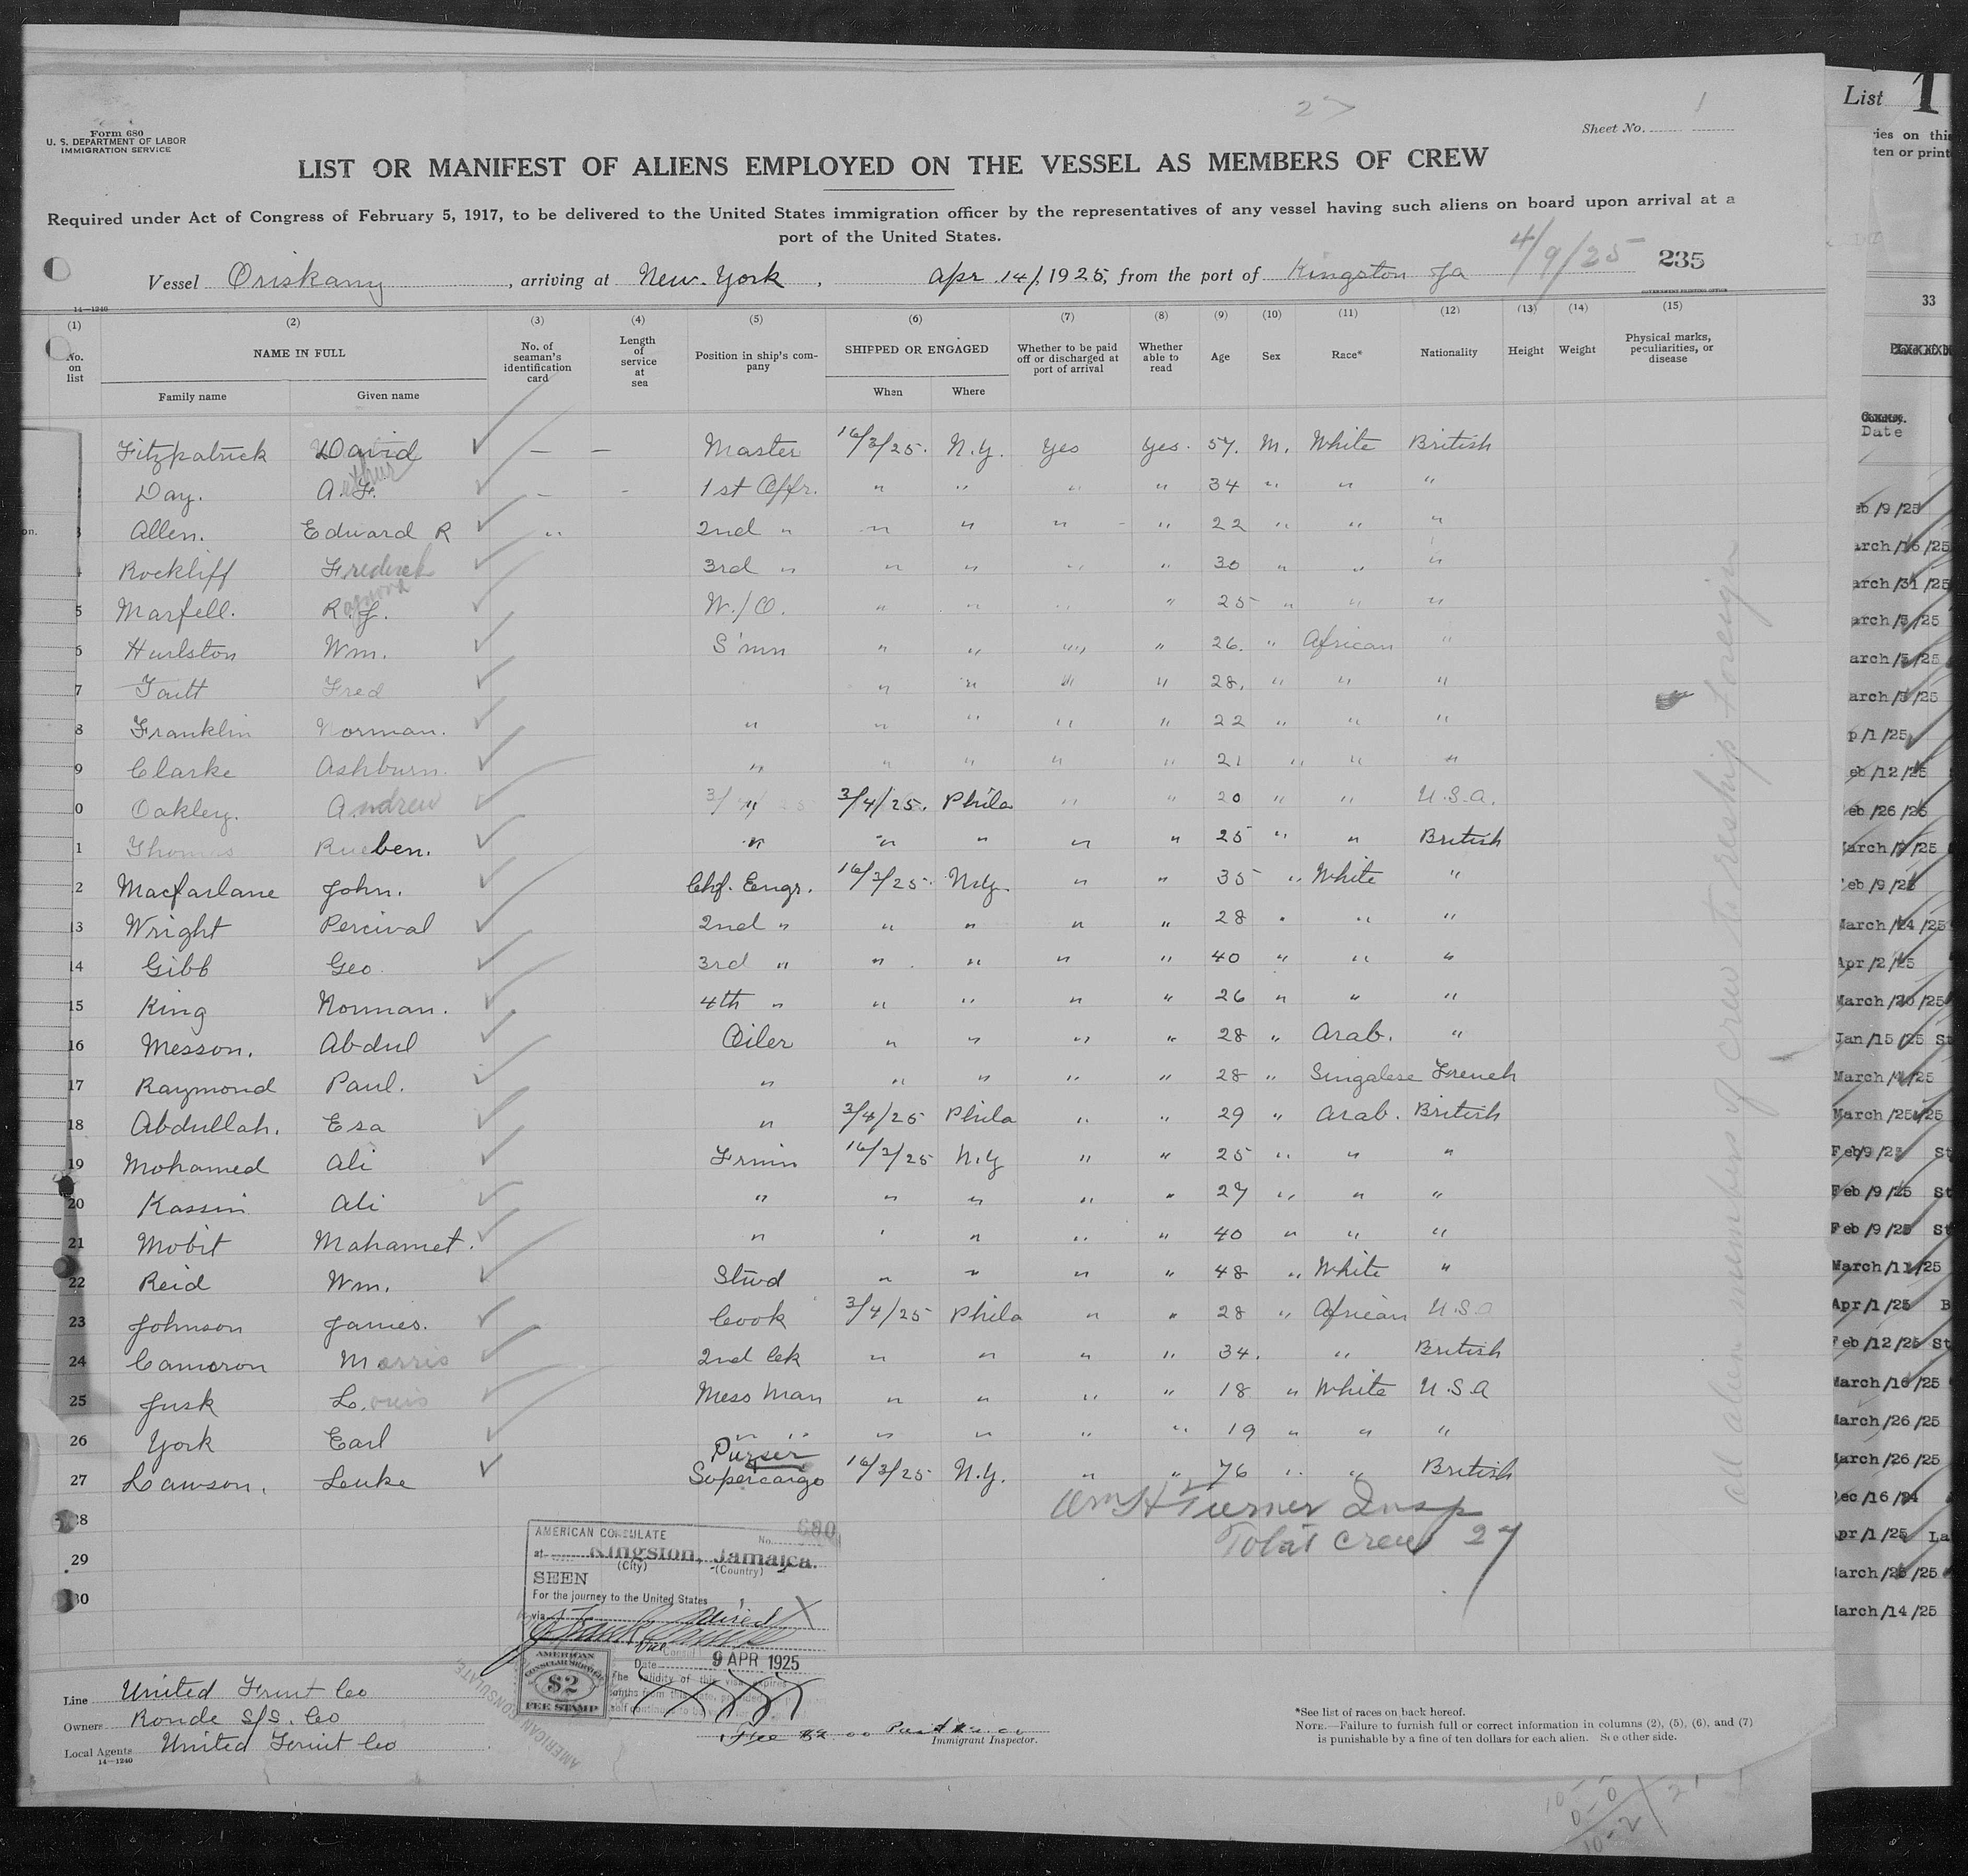 27
1
Sheet No.
Form 680
U. S. DEPARTMENT OF LABOR
IMMIGRATION SERVICE
LIST OR MANIFEST OF ALIENS EMPLOYED ON THE VESSEL AS MEMBERS OF CREW
Required under Act of Congress of February 5, 1917, to be delivered to the United States immigration officer by the representatives of any vessel having such aliens on board upon arrival at a
port of the United States.
4/9/25 235
Vessel Oriskany, arriving at New York, Apr. 14/, 1925, from the port of Kingston Ja
14—1240
GOVERNMENT PRINTING OFFICE
(1) (2) (3) (4) (5) (6) (7) (8) (9) (10) (11) (12) (13) (14) (15)
No. on list NAME IN FULL No. of seaman's identification card Length of service at sea Position in ship's company SHIPPED OR ENGAGED Whether to be paid off or discharged at port of arrival Whether able to read Age Sex Race* Nationality Height Weight Physical marks, peculiarities, or disease
Family name Given name When Where
Fitzpatrick David — — Master 16/3/25. N.Y. Yes Yes. 57. M. White British
Day. A. F. - - 1st Offr. " " " " 34 " " "
3 Allen. Edward R " 2nd " " " " " 22 " " "
Rockliff Frederick 3rd " " " " " 30 " " "
5 Marfell. R. J. W./O. " " " " 25 " " "
6 Hurlston Wm. S'mn " " " " 26. " African "
7 Tatt Fred " " " " 28. " " "
8 Franklin Norman. " " " " " 22 " " "
9 Clarke Ashburn. " " " " " 21 " " "
0 Oakley. Andrew " 3/4/25. Phila " " 20 " " U.S.A.
1 Thomas Rueben. " " " " " 25 " " British
2 Macfarlane John. Chf. Engr. 16/3/25. N.Y. " " 35 " White "
13 Wright Percival 2nd " " " " " 28 " " "
14 Gibb Geo. 3rd " " " " " 40 " " "
15 King Norman. 4th " " " " " 26 " " "
16 Messon. Abdul Oiler " " " " 28 " Arab. "
17 Raymond Paul. " " " " " 28 " Singalese French
18 Abdullah. Esa " 3/4/25 Phila " " 29 " Arab. British
19 Mohamed Ali Frmn 16/3/25 N.Y " " 25 " " "
20 Kassim Ali " " " " " 27 " " "
21 Mobit Mahamet. " " " " " 40 " " "
22 Reid Wm. Stwd " " " " 48 " White "
23 Johnson James. Cook 3/4/25 Phila " " 28 " African U.S.A
24 Cameron Morris 2nd Ck " " " " 34. " British
25 Jusk Louis Mess Man " " " " 18 " White U.S.A
26 York Earl " " " " " " 19 " " "
Purser
27 Lawson. Leuke Supercargo 16/3/25 N.Y. " " 76 " " British
28
29
30
Wm H Turner Insp
Total Crew 27
all alien members of crew to reship foreign
AMERICAN CONSULATE No. 680
at Kingston, Jamaica.
(City) (Country)
SEEN
For the journey to the United States
via direct
Vice Consul
Date 9 APR 1925
The validity of this visa expires
AMERICAN
CONSULAR SERVICE
$2
FEE STAMP
AMERICAN CONSULATE
Line United Fruit Co
Owners Ronde S/S. Co
Local Agents United Fruit Co
14—1240
Immigrant Inspector.
*See list of races on back hereof.
NOTE.—Failure to furnish full or correct information in columns (2), (5), (6), and (7)
is punishable by a fine of ten dollars for each alien. See other side.
List 1
33
Date
eb/9/25
arch/16/25
arch/31/25
arch/3/25
arch/3/25
arch/3/25
p/1/25
eb/12/25
eb/26/25
eb/9/25
March/24/25
Apr/2/25
March/30/25
Jan/15/25 St
March/25/25
Feb/9/25 St
Feb/9/25 St
Feb/9/25 St
March/11/25
Apr/1/25 B
Feb/12/25 St
March/16/25
March/26/25
March/26/25
Dec/16/24
Apr/1/25 La
March/14/25